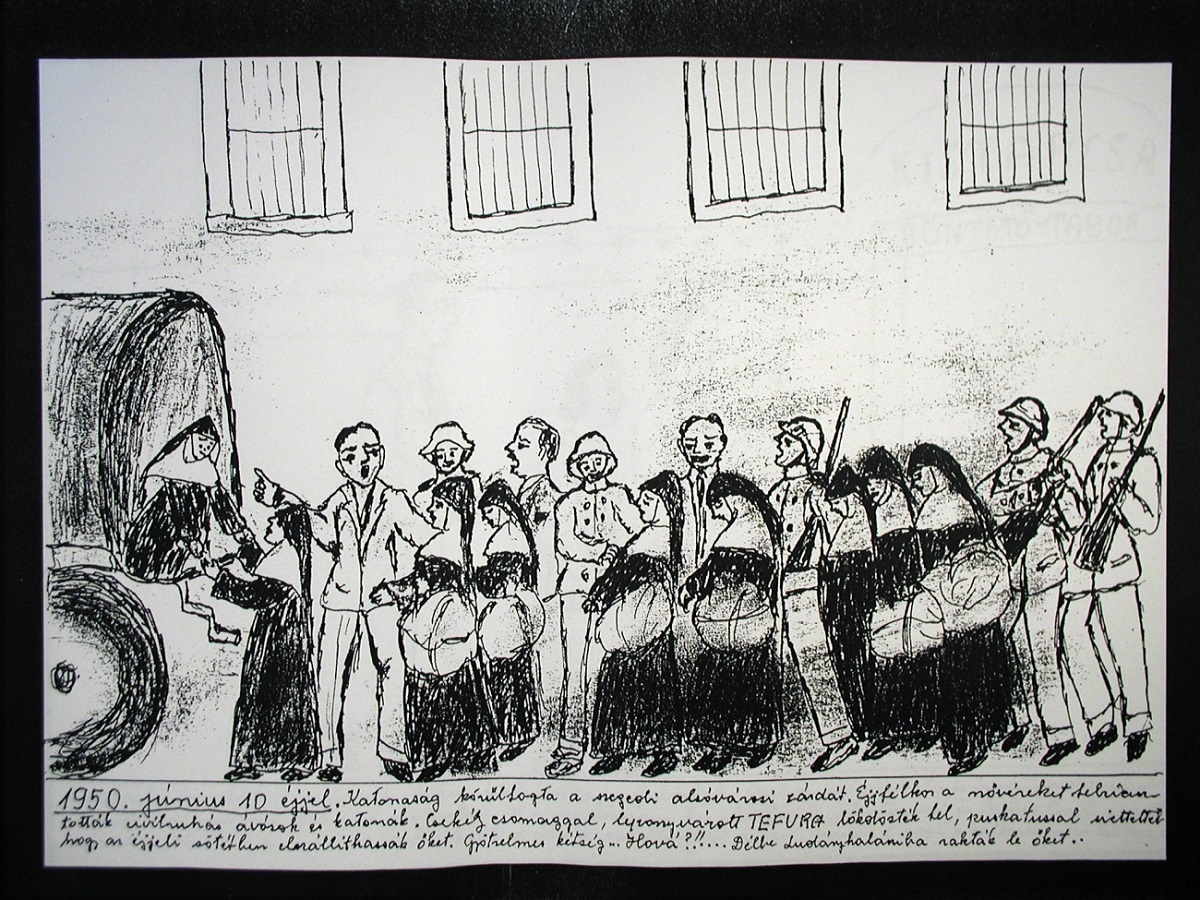 1950. június 10 éjjel. Katonaság körülfogta a szegedi alsóvárosi zárdát. Éjfélkor a növéreket felrian-
tották civilruhás ávósok és katonák. Csekély csomaggal, leponyvázott TEFURA lökdözték fel, puskatussal siettették
hogy az éjjeli sötétben elszállithassák őket. Gyötrelmes kétség... Hová?!!.... Délbe Ludányhalásziba rakták le őket..